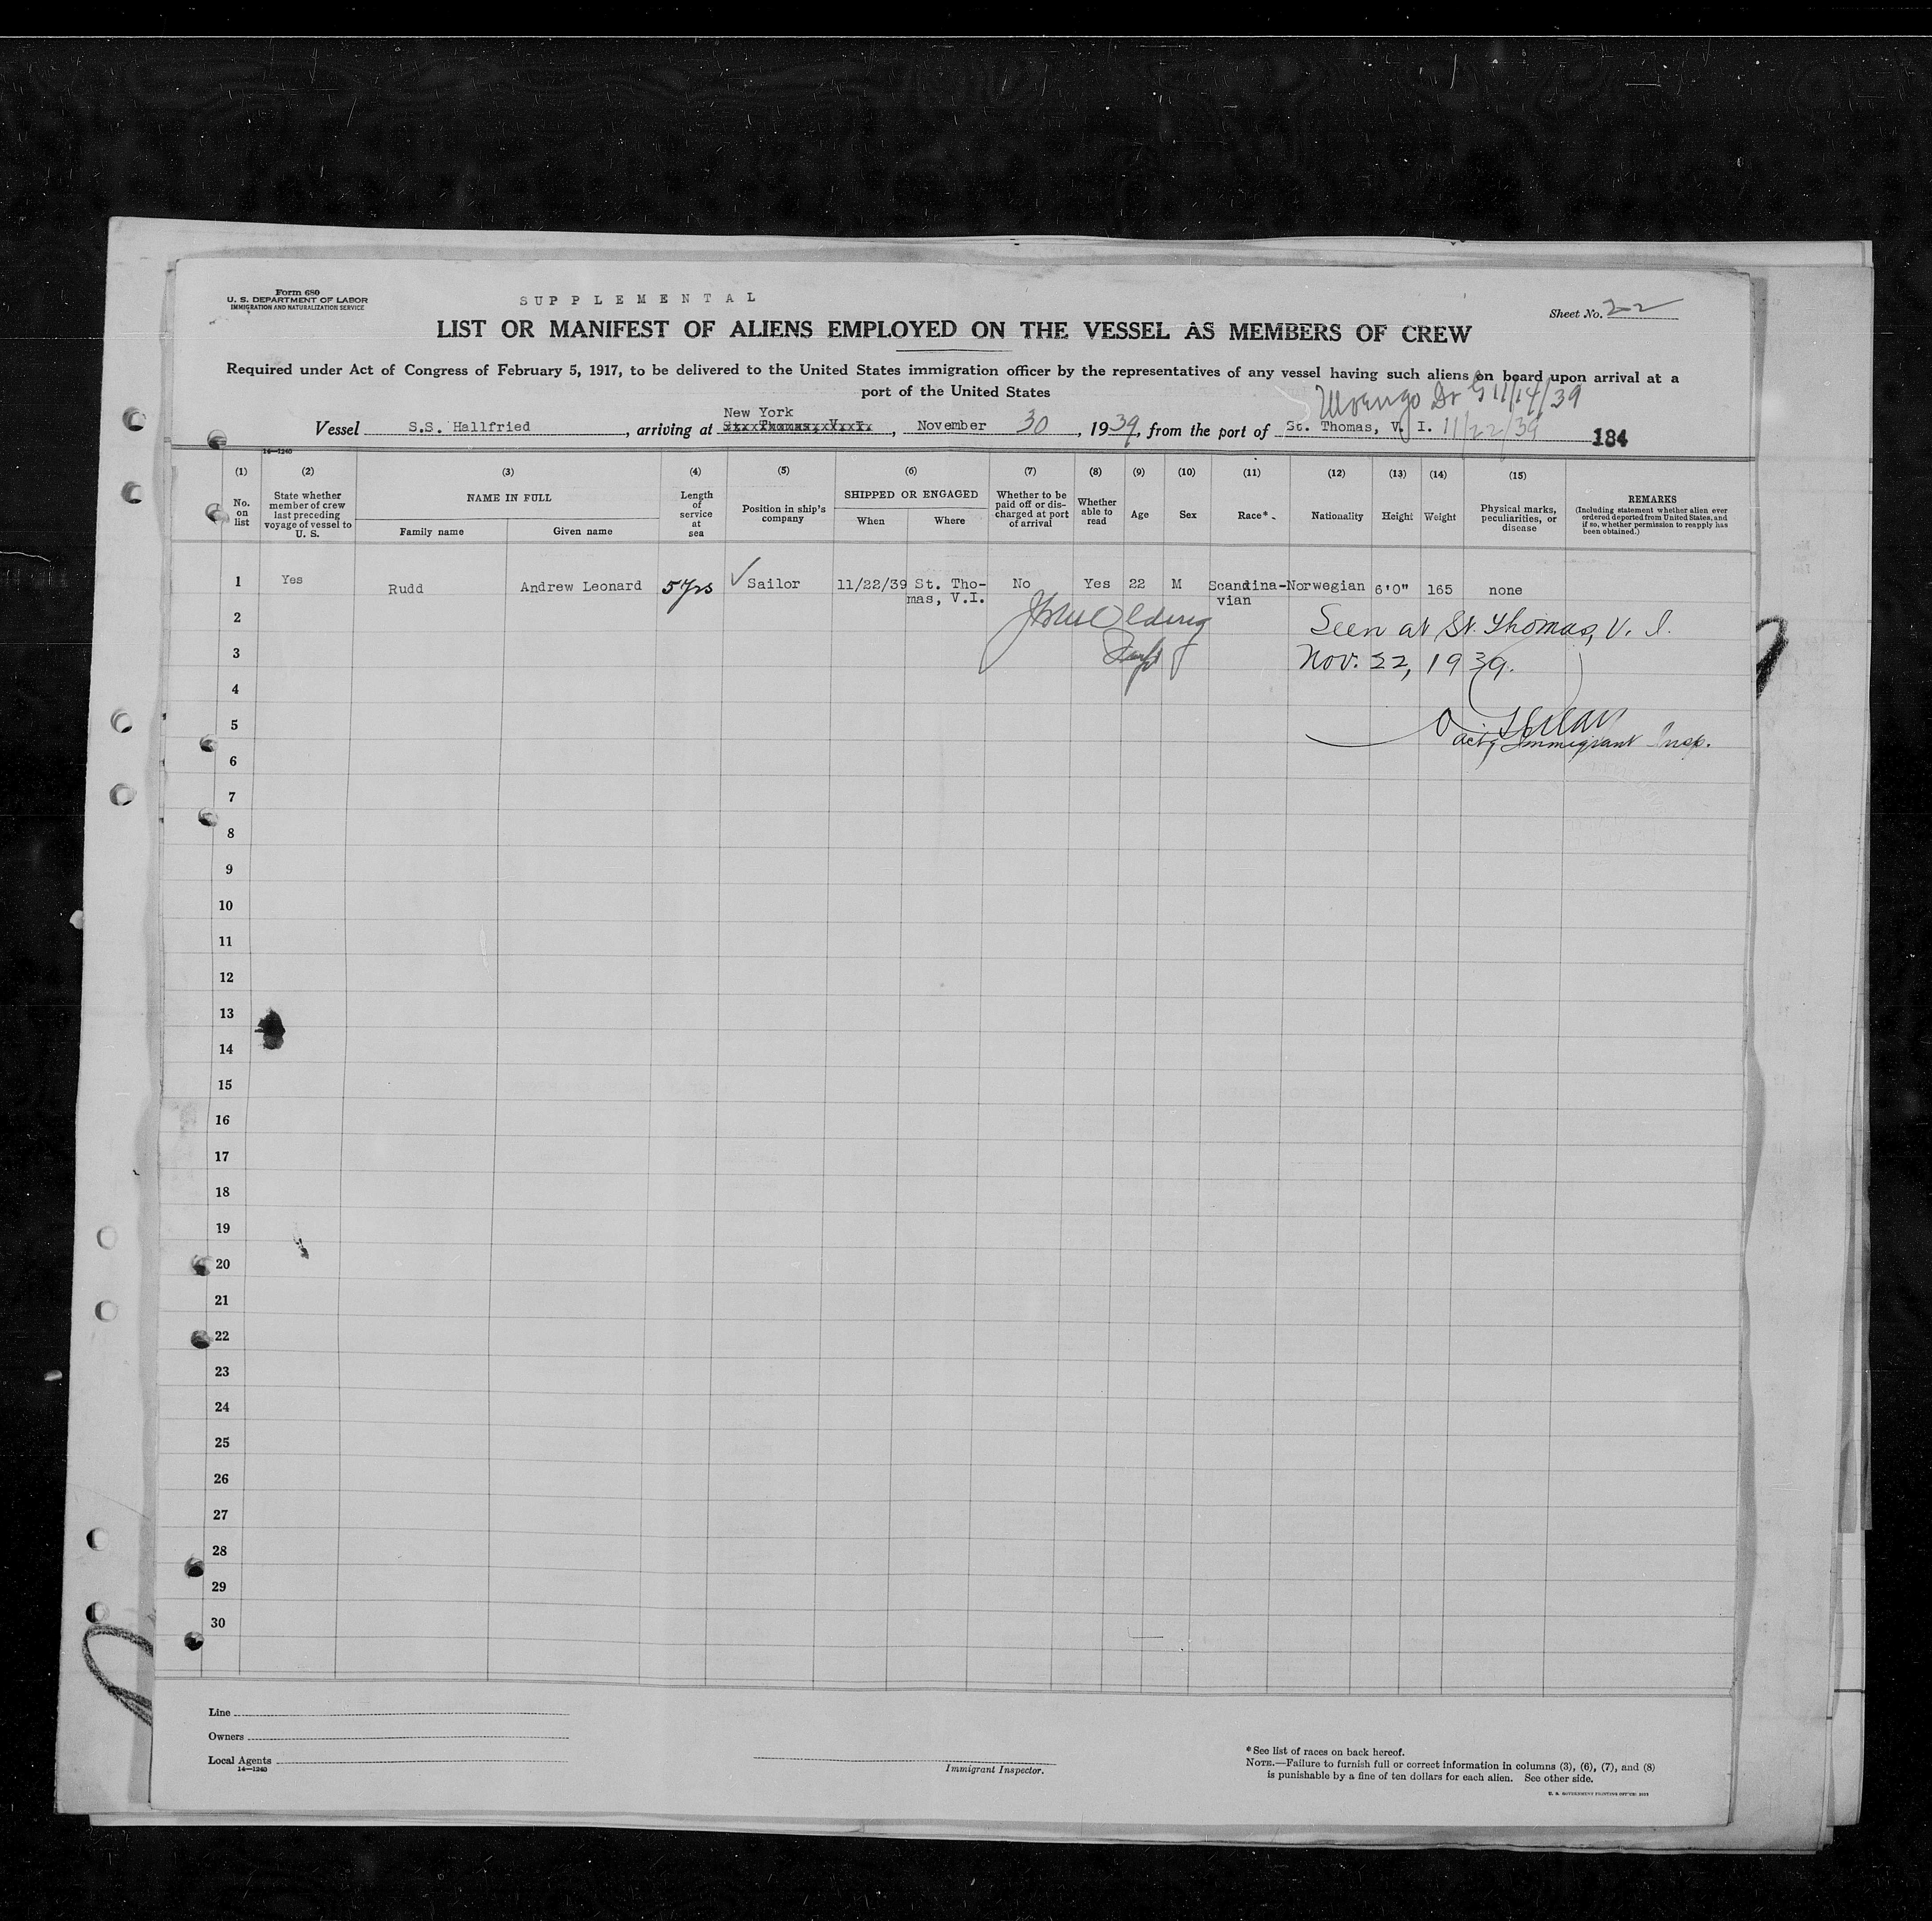 Form 680
U. S. DEPARTMENT OF LABOR
IMMIGRATION AND NATURALIZATION SERVICE
SUPPLEMENTAL
Sheet No. 22
LIST OR MANIFEST OF ALIENS EMPLOYED ON THE VESSEL AS MEMBERS OF CREW
Required under Act of Congress of February 5, 1917, to be delivered to the United States immigration officer by the representatives of any vessel having such aliens on board upon arrival at a
port of the United States
11/14/39
New York
Vessel S.S. Hallfried, arriving at St. Thomas, V. I., November 30, 1939, from the port of St. Thomas, V. I. 11/22/39
184
14—1240
(1) (2) (3) (4) (5) (6) (7) (8) (9) (10) (11) (12) (13) (14) (15)
No. on list
State whether member of crew last preceding voyage of vessel to U. S.
NAME IN FULL
Family name
Given name
Length of service at sea
Position in ship's company
SHIPPED OR ENGAGED
When
Where
Whether to be paid off or discharged at port of arrival
Whether able to read
Age
Sex
Race*
Nationality
Height
Weight
Physical marks, peculiarities, or disease
REMARKS
(Including statement whether alien ever ordered deported from United States, and if so, whether permission to reapply has been obtained.)
1 Yes Rudd Andrew Leonard 5 yrs ✓ Sailor 11/22/39 St. Tho- No Yes 22 M Scandina- Norwegian 6'0" 165 none
mas, V.I. vian
2 Seen at St. Thomas, V. I.
3 Nov. 22, 1939.
4
5
actg Immigrant Insp.
6
7
8
9
10
11
12
13
14
15
16
17
18
19
20
21
22
23
24
25
26
27
28
29
30
Line
Owners
Local Agents
14—1240
Immigrant Inspector.
*See list of races on back hereof.
NOTE.—Failure to furnish full or correct information in columns (3), (6), (7), and (8)
is punishable by a fine of ten dollars for each alien. See other side.